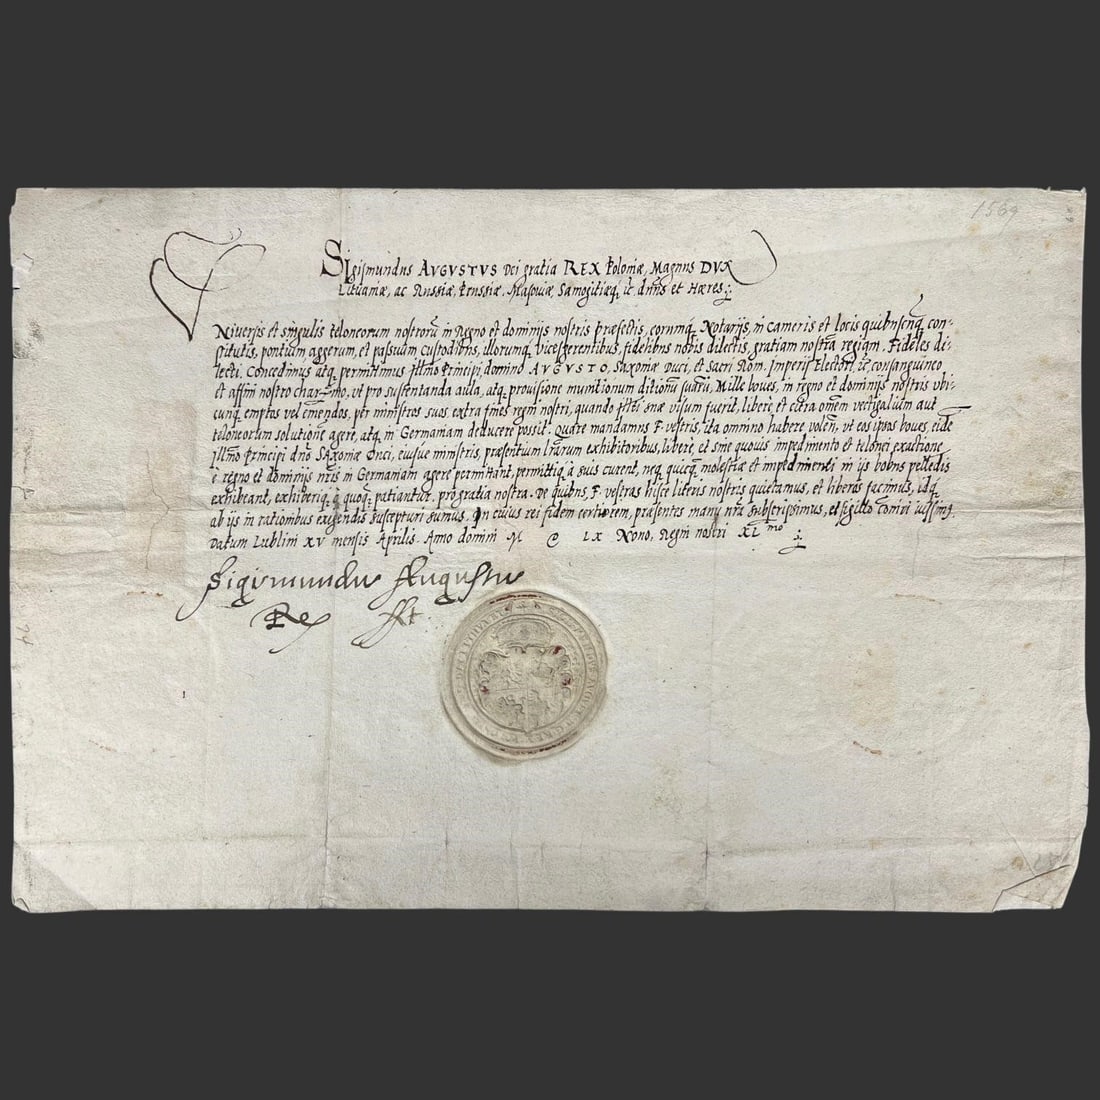 1569
Sigismundus AVGVSTVS Dei gratia REX Poloniæ, Magnus DVX
Lituaniæ, ac Russiæ, Prussiæ, Masouiæ, Samogitiæq, ꝛc dn̄us et Hæres
VNiuersis et singulis teloneorum nostrorū in Regno et dominijs nostris præfectis, eorumq, Notarijs, in Cameris et locis quibuscūq con-
stitutis, pontium, aggerum, et passuum custodibus, illorumq, vicesgerentibus, fidelibus nobis dilectis, gratiam nostrā regiam. Fideles di-
lecti. Concedimus atq, permittimus Illmo Principi, domino AVGVSTO, Saxoniæ Duci, et Sacri Rom. Imperij Electori, ꝛc consanguineo
et affini nostro char-mo, vt pro sustentanda aula, atq, prouisione munitionum ditionū suarū, Mille boues, in regno et dominijs nostris vbi-
cunq, emptos vel emēdos, per ministros suos extra fines regni nostri, quando Illtei suæ visum fuerit, libere, et citra omēm vectigalium aut
teloneorum solutionē agere, atq, in Germaniam deducere possit. Quare mandamus F. vestris, ita omnino habere volen, vt eos ipsos boues, eidē
Illmo Principi dn̄o Saxoniæ Duci, eiusue ministris, præsentium lrārum exhibitoribus, libere, et sine quouis impedimento et telonei exactione
è regno et dominijs nrīs in Germaniam agere permittant, permittiq, à suis curent, neq, quicq, molestiæ et impedimenti in ijs bobus pellendis
exhibeant, exhiberiq, à quoq patiantur. pro gratia nostra. De quibus, F. vestras hisce literis nostris quietamus, et liberas facimus, idq,
ab ijs in rationibus exigendis suscepturi sumus. In cuius rei fidem certiorem, præsentes manu nrā subscripsimus, et sigillo com̄iri iussim9.
Datum Lublini XV mensis Aprilis. Anno domini M D LX Nono, Regni nostri XL mo
Sigismundus Augustus
Rex